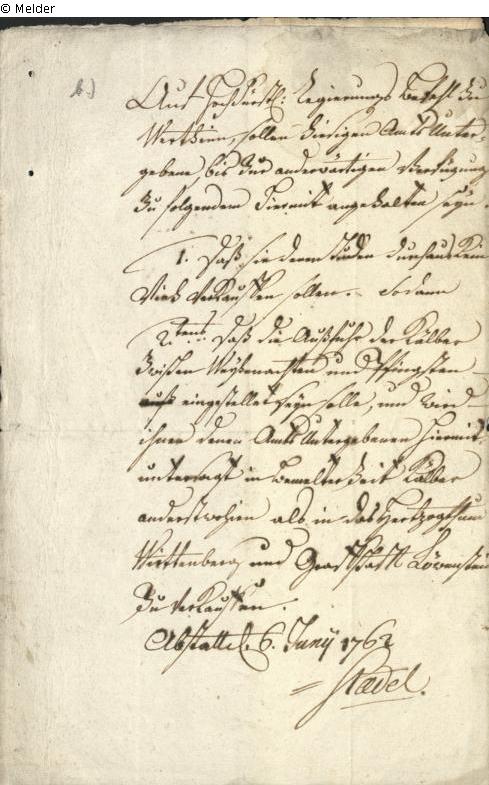 © Melder
b.)
Auf Hochfürstl: Regierungs Befehl zu
Wertheim, sollen hiesigen Amts Unter-
gebene, bis zur anderwärtigen Verfügung
zu folgendem hiermit angehalten seyn.
1. Daß sie denen Juden durchaus kein
Vieh verkauffen sollen. Sodann
2.tens Daß die Außfuhr der Kälber
zwischen Weyhnachten und Pfingsten
eingestellet seyn solle, und wird
ihnen denen Amts Untergebenen hiermit
untersagt in bemelter Zeit Kälber
anderstwohien als in das Hertzogthum
Württenberg und Graffschafft Löwenstein
zu verkauffen.
Abstatt d. 6. Junij 1762
Stadel.